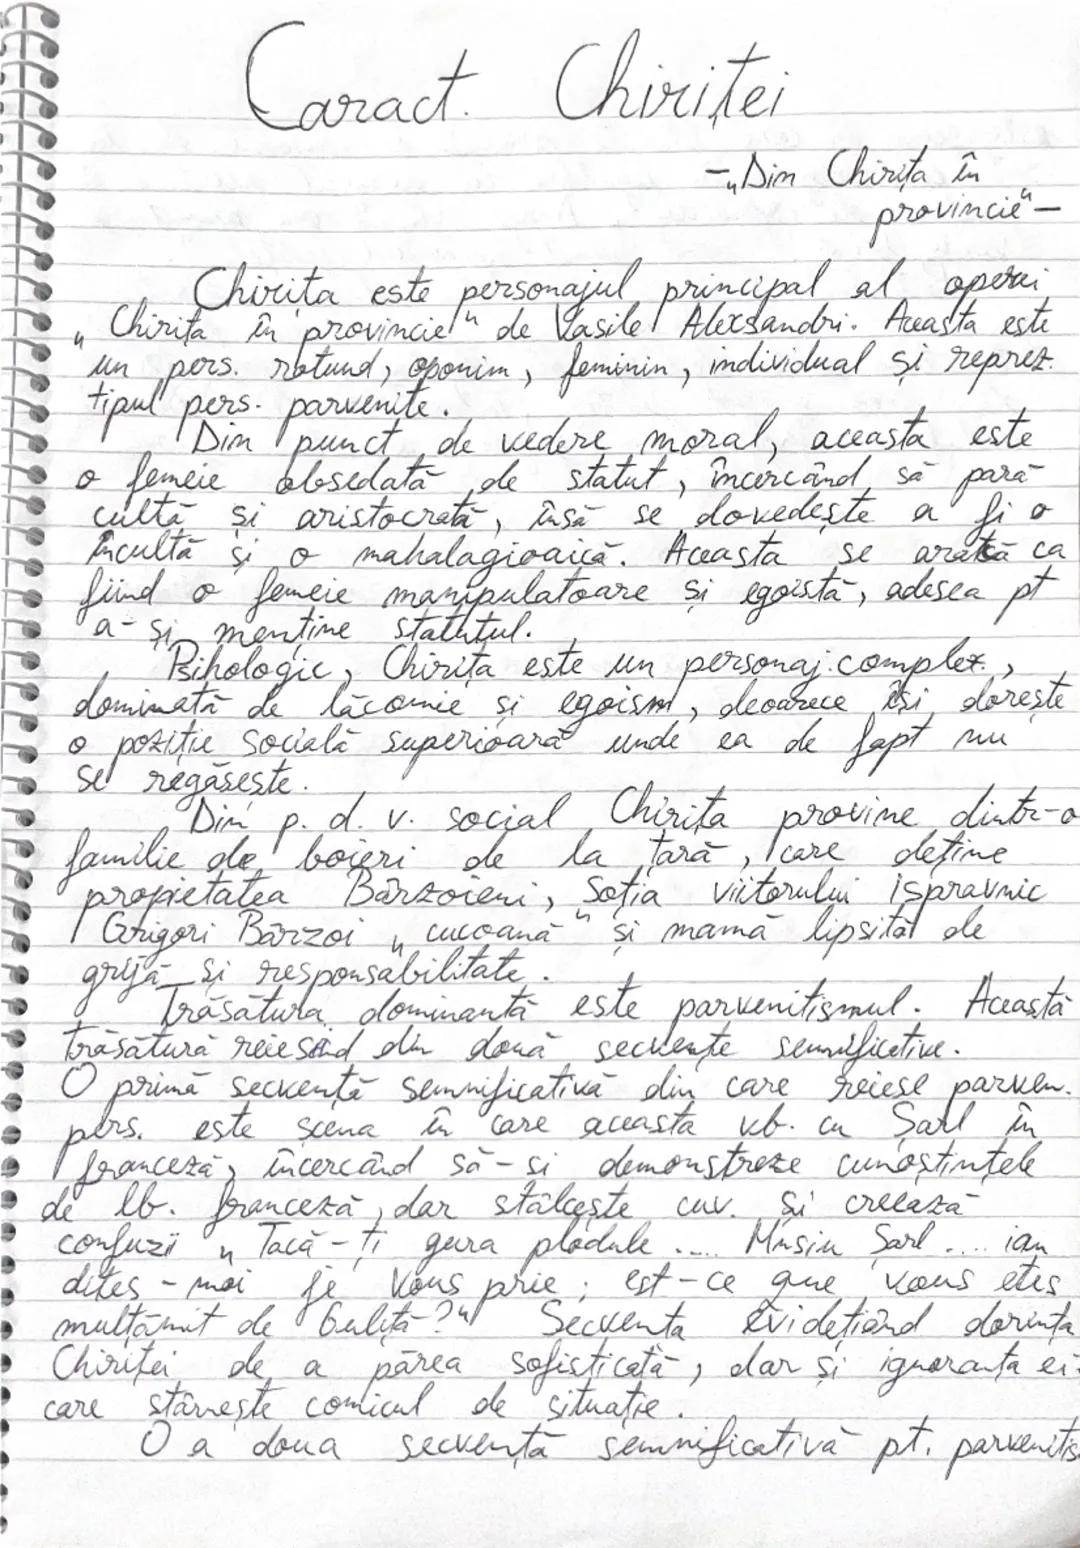 Caract. Chiriței
-„Din Chirița în
provincie"-
Chirița este personajul principal al operei
„Chirița în provincie" de Vasile Alecsandri. Aceasta este
un pers. rotund, eponim, feminin, individual și reprez.
tipul pers. parvenite.
Din punct de vedere moral, aceasta este
o femeie obsedată de statut, încercând să pară
cultă și aristocrată, însă se dovedește a fi o
incultă și o mahalagioaică. Aceasta se arată ca
fiind o femeie manipulatoare și egoistă, adesea pt
a-și menține statutul.
Psihologic, Chirița este un personaj complex,
dominată de lăcomie și egoism, deoarece își dorește
o poziție socială superioară unde ea de fapt nu
se regăsește.
Din p. d. v. social Chirița provine dintr-o
familie de boieri de la țară, care deține
propietatea Bârzoieni, Soția viitorului ispravnic
Grigori Bârzoi „cucoană" și mamă lipsită de
grijă și responsabilitate.
Trăsătura dominantă este parvenitismul. Această
trăsătură reieșind din două secvențe semnificative.
O primă secvență semnificativă din care reiese parven.
pers. este scena în care aceasta vb. cu Șarl în
franceză, încercând să-și demonstreze cunoștințele
de lb. franceză, dar stâlcește cuv. și creează
confuzii „Tacă-ți gura plodule .... Musiu Șarl .... ian
dites-moi je vous prie; est-ce que vous etes
mulțămit de Guliță?" Secvența evidețiând dorința
Chiriței de a părea sofisticată, dar și ignoranța ei
care stârnește comicul de situație.
O a doua secvență semnificativă pt. parvenitis